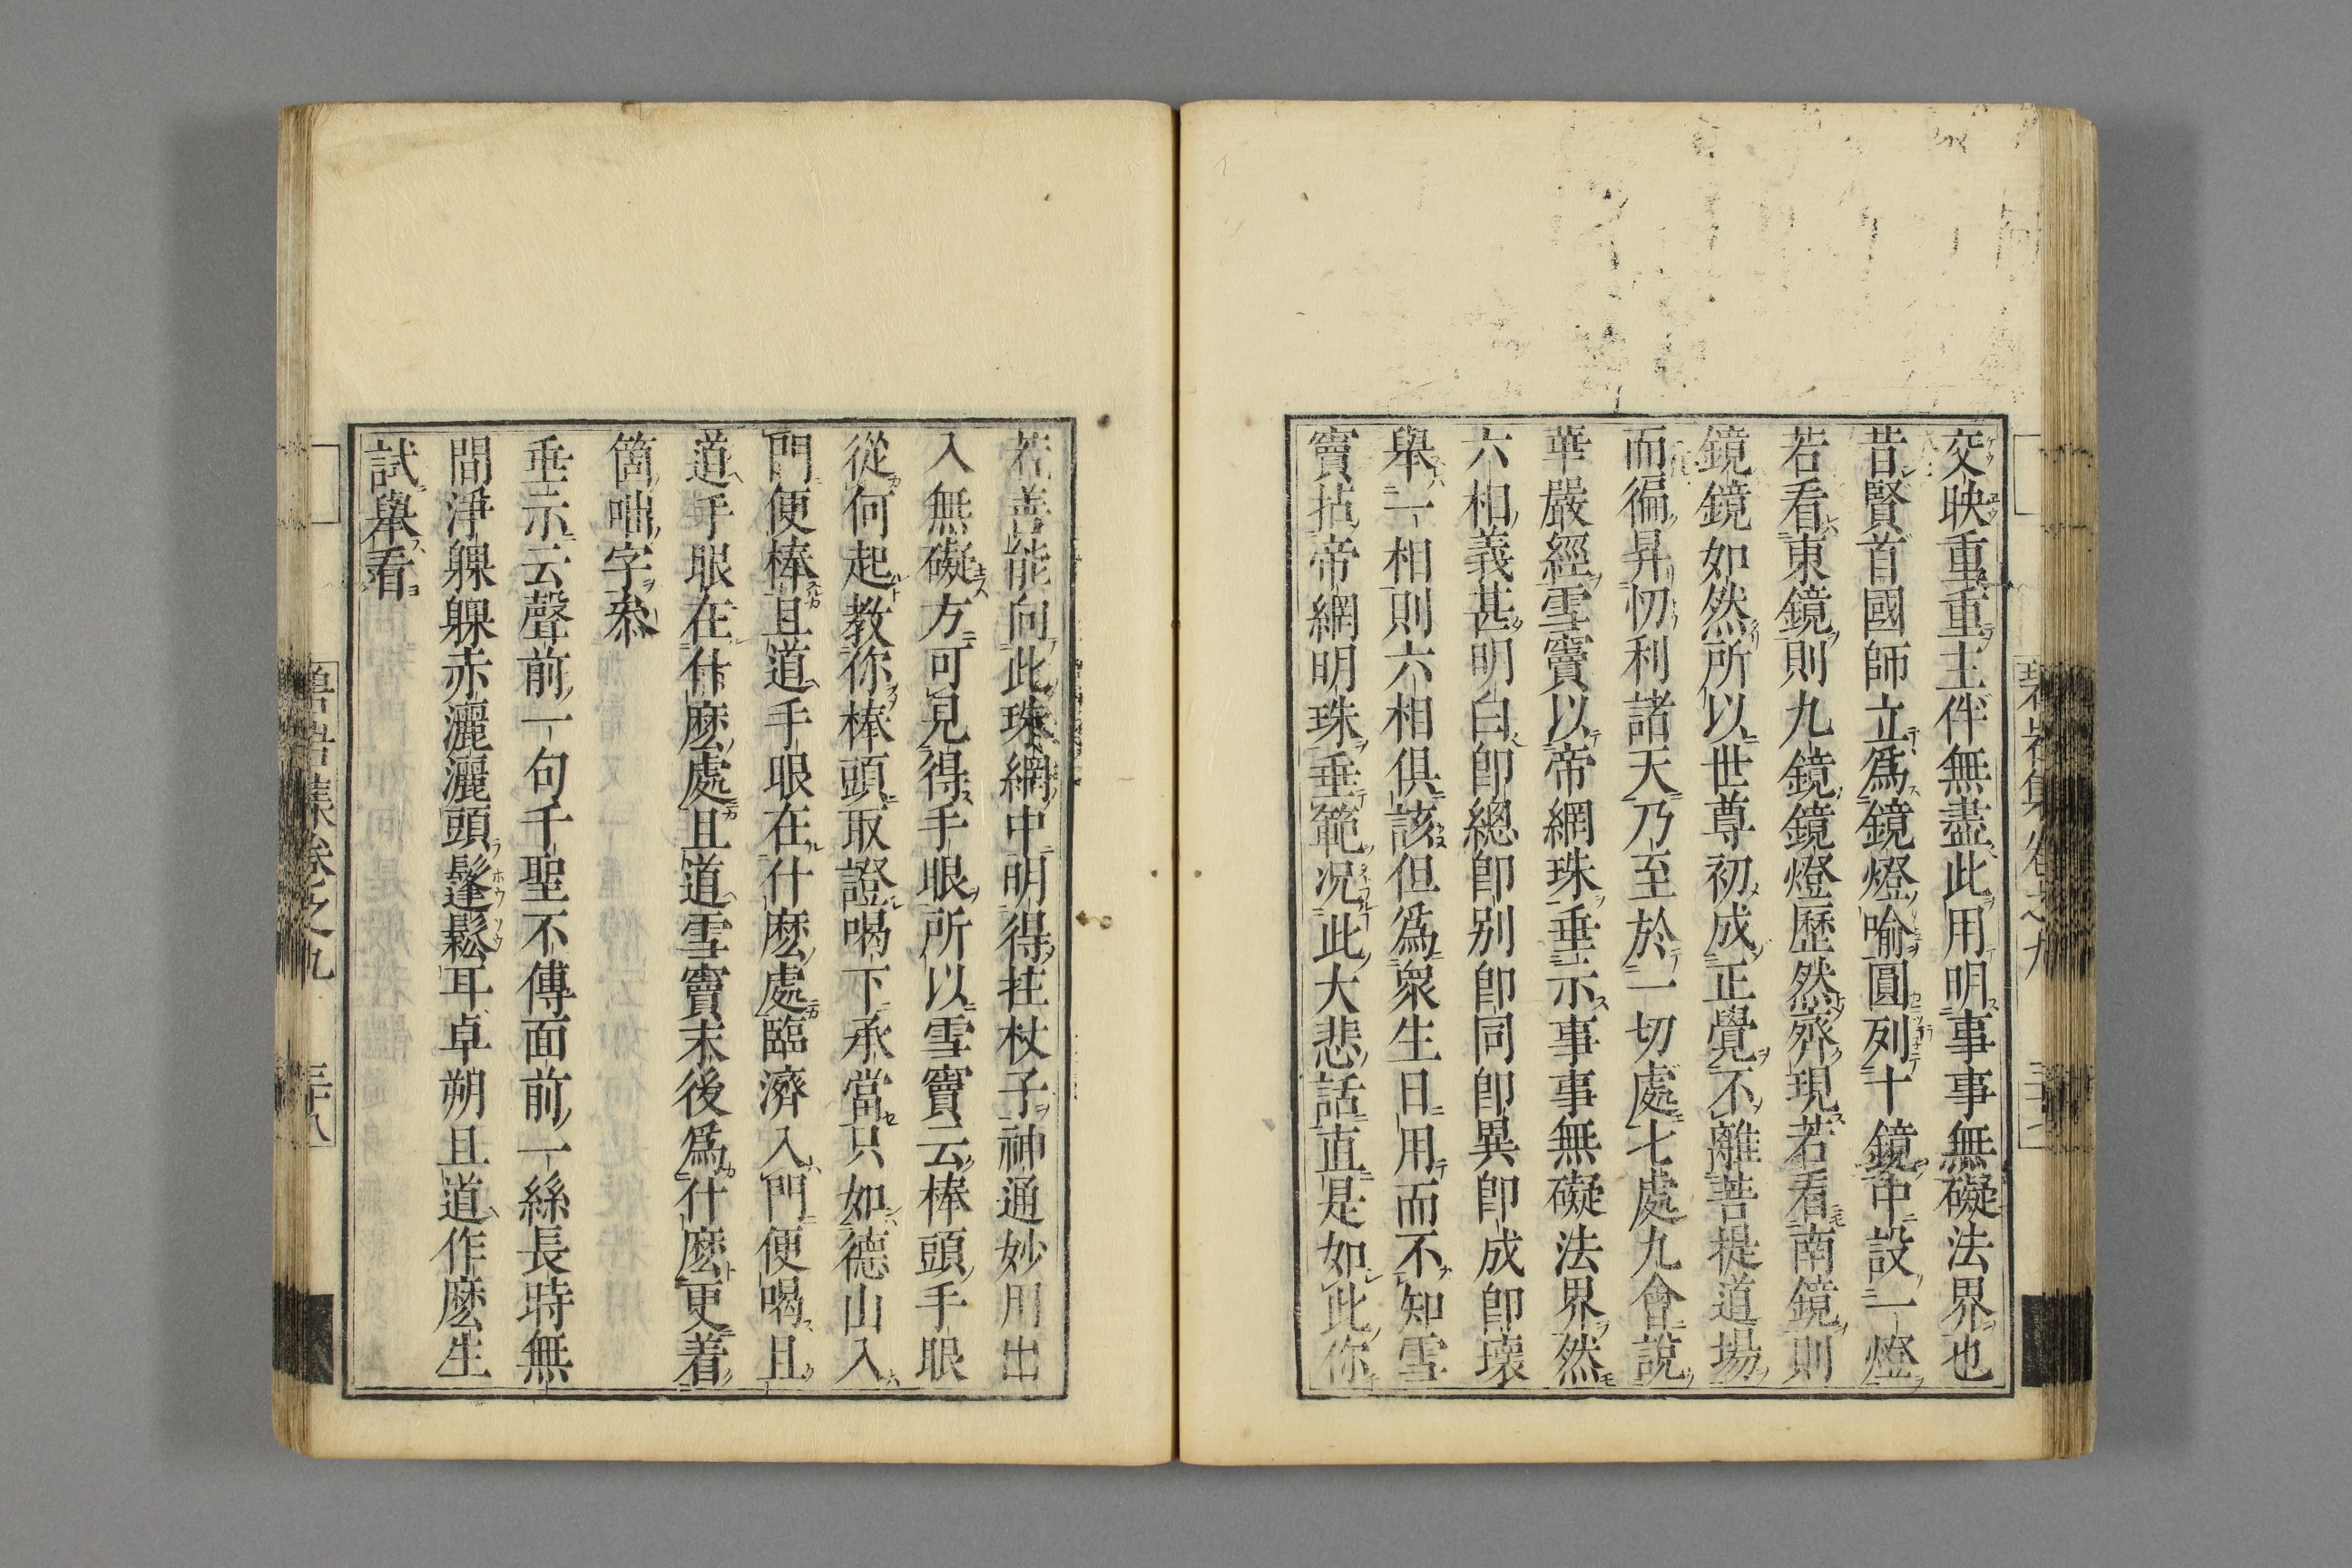 交映重重主伴無盡此用明事事無礙法界也
昔賢首國師立爲鏡燈喻圓列十鏡中設一燈
若看東鏡則九鏡鏡燈歷然齊現若看南鏡則
鏡鏡如然所以世尊初成正覺不離菩提道場
而徧昇忉利諸天乃至於一切處七處九會說
華嚴經雪竇以帝網珠垂示事事無礙法界然
六相義甚明白卽總卽別卽同卽異卽成卽壞
舉一相則六相俱該但爲衆生日用而不知雪
竇拈帝網明珠垂範况此大悲話直是如此你
若善能向此珠網中明得拄杖子神通妙用出
入無礙方可見得手眼所以雪竇云棒頭手眼
從何起教你棒頭取證喝下承當只如德山入
門便棒且道手眼在什麽處臨濟入門便喝且
道手眼在什麽處且道雪竇末後爲什麽更着
箇咄字叅
垂示云聲前一句千聖不傳面前一絲長時無
間淨躶躶赤灑灑頭鬔鬆耳卓朔且道作麽生
試舉看
集卷之九